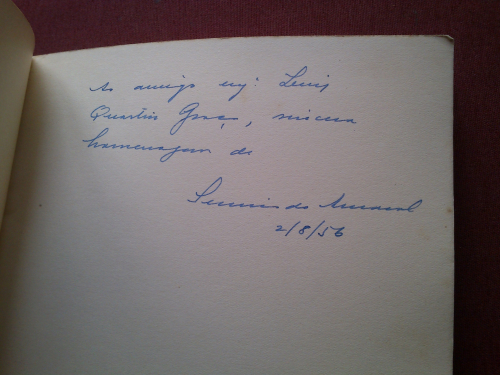 Ao amigo engº Luis
Quartin Graça, sincera
homenagem de
do Amaral
2/8/56